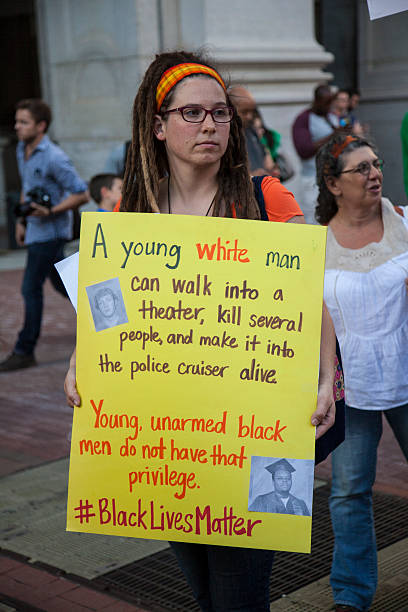 A young white man
can walk into a
theater, kill several
people, and make it into
the police cruiser alive.
Young, unarmed black
men do not have that
privilege.
#BlackLivesMatter